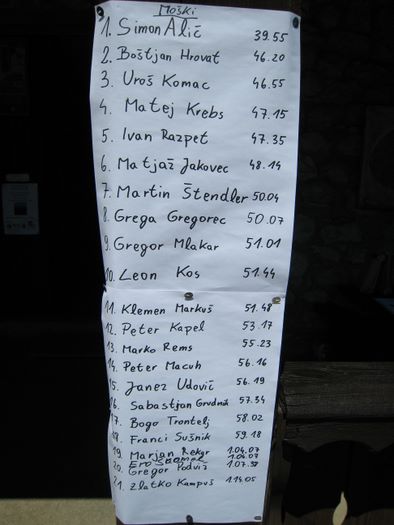 Moški
1. Simon Alič 39.55
2. Boštjan Hrovat 46.20
3. Uroš Komac 46.55
4. Matej Krebs 47.15
5. Ivan Razpet 47.35
6. Matjaž Jakovec 48.14
7. Martin Štendler 50.04
8. Grega Gregorec 50.07
9. Gregor Mlakar 51.01
10. Leon Kos 51.44
11. Klemen Markuš 51.48
12. Peter Kapel 53.17
13. Marko Rems 55.23
14. Peter Macuh 56.16
15. Janez Udovič 56.19
16. Sabastjan Grudnik 57.34
17. Bogo Trontelj 58.02
18. Franci Sušnik 59.18
19. Marjan Rekar 1.04.07
1.04.07
20. Gregor Podviž
21. Zlatko Kampuš 1.14.05